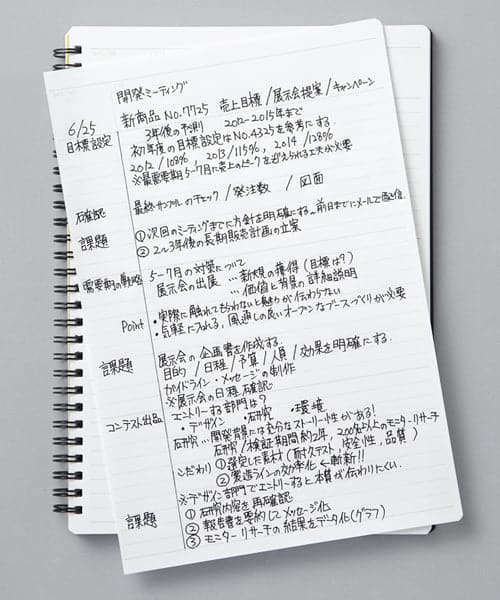 開発ミーティング
新商品 No.7725 売上目標/展示会提案/キャンペーン
6/25
目標設定 3年後の予測 2012-2015年まで
初年度の目標設定はNo.4325を参考にする.
2012/108%, 2013/115%, 2014/128%
※最需要期5-7月に売上のピークを迎えられる工夫が必要
確認 最終サンプルのチェック/発注数 /図面
課題 ①次回のミーティングまでに方針を明確にする。前日までにメールで配信.
②2〜3年後の長期販売計画の立案
需要期の戦略 5-7月の対策について
展示会の出展 …新規の獲得(目標は?)
…価値と背景の詳細説明
Point ・実際に触れてもらわないと魅力が伝わらない
・気軽に入れる,風通しの良いオープンなブースづくりが必要
課題 展示会の企画書を作成する.
目的/日程/予算/人員/効果を明確にする.
ガイドライン・メッセージの制作
※展示会の日程確認.
コンテスト出品 エントリーする部門は?
・デザイン ・研究 ・環境
研究…開発背景には充分なストーリー性がある!
研究/検証期間約2年,200名以上のモニターリサーチ
こだわり ①選定した素材(耐久テスト,安全性,品質)
②製造ラインの効率化←斬新!!
※デザイン部門でエントリーすると本質が伝わりにくい.
課題 ①研究内容を再確認
②報告書を要約してメッセージ化
③モニターリサーチの結果をデータ化(グラフ)